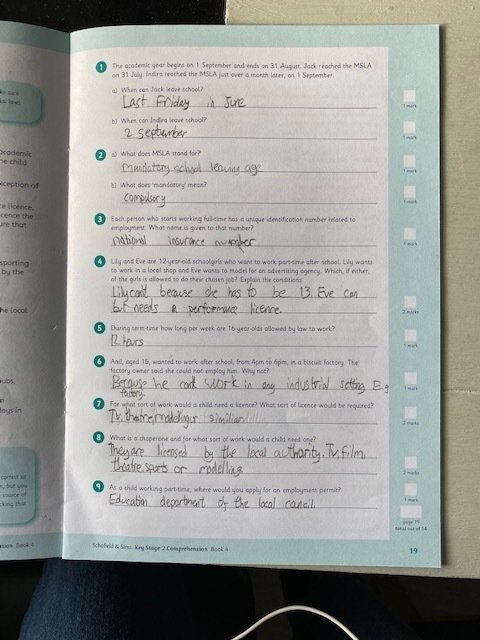 ke sure
al laws
academic
he child
xception of
ce licence.
cence the
ure that
sporting
by the
he local
ubs,
n
days in
correct at
n, but you
source of
cking that
nsion Book 4
1 The academic year begins on 1 September and ends on 31 August. Jack reached the MSLA
on 31 July. Indira reached the MSLA just over a month later, on 1 September.
a) When can Jack leave school?
Last Friday in June
1 mark
b) When can Indira leave school?
2 September
1 mark
2 a) What does MSLA stand for?
mandatory school leaving age
1 mark
b) What does 'mandatory' mean?
compulsory
1 mark
3 Each person who starts working full-time has a unique identification number related to
employment. What name is given to that number?
national insurance number
1 mark
4 Lily and Eve are 12-year-old schoolgirls who want to work part-time after school. Lily wants
to work in a local shop and Eve wants to model for an advertising agency. Which, if either,
of the girls is allowed to do their chosen job? Explain the conditions.
Lily can't because she has to be 13. Eve can
but needs a performance licence.
2 marks
5 During term-time how long per week are 16-year-olds allowed by law to work?
12 hours
1 mark
6 Anil, aged 15, wanted to work after school, from 4pm to 6pm, in a biscuit factory. The
factory owner said she could not employ him. Why not?
Because he cant work in any industrial setting E.g
factory.
1 mark
7 For what sort of work would a child need a licence? What sort of licence would be required?
Tv, theatre, modeling or similiar
2 marks
8 What is a chaperone and for what sort of work would a child need one?
They are licensed by the local authority. Tv, film,
theatre, sports or modelling
2 marks
9 As a child working part-time, where would you apply for an employment permit?
Education department of the local council.
1 mark
page 19
total out of 14
Schofield & Sims Key Stage 2 Comprehension Book 4
19